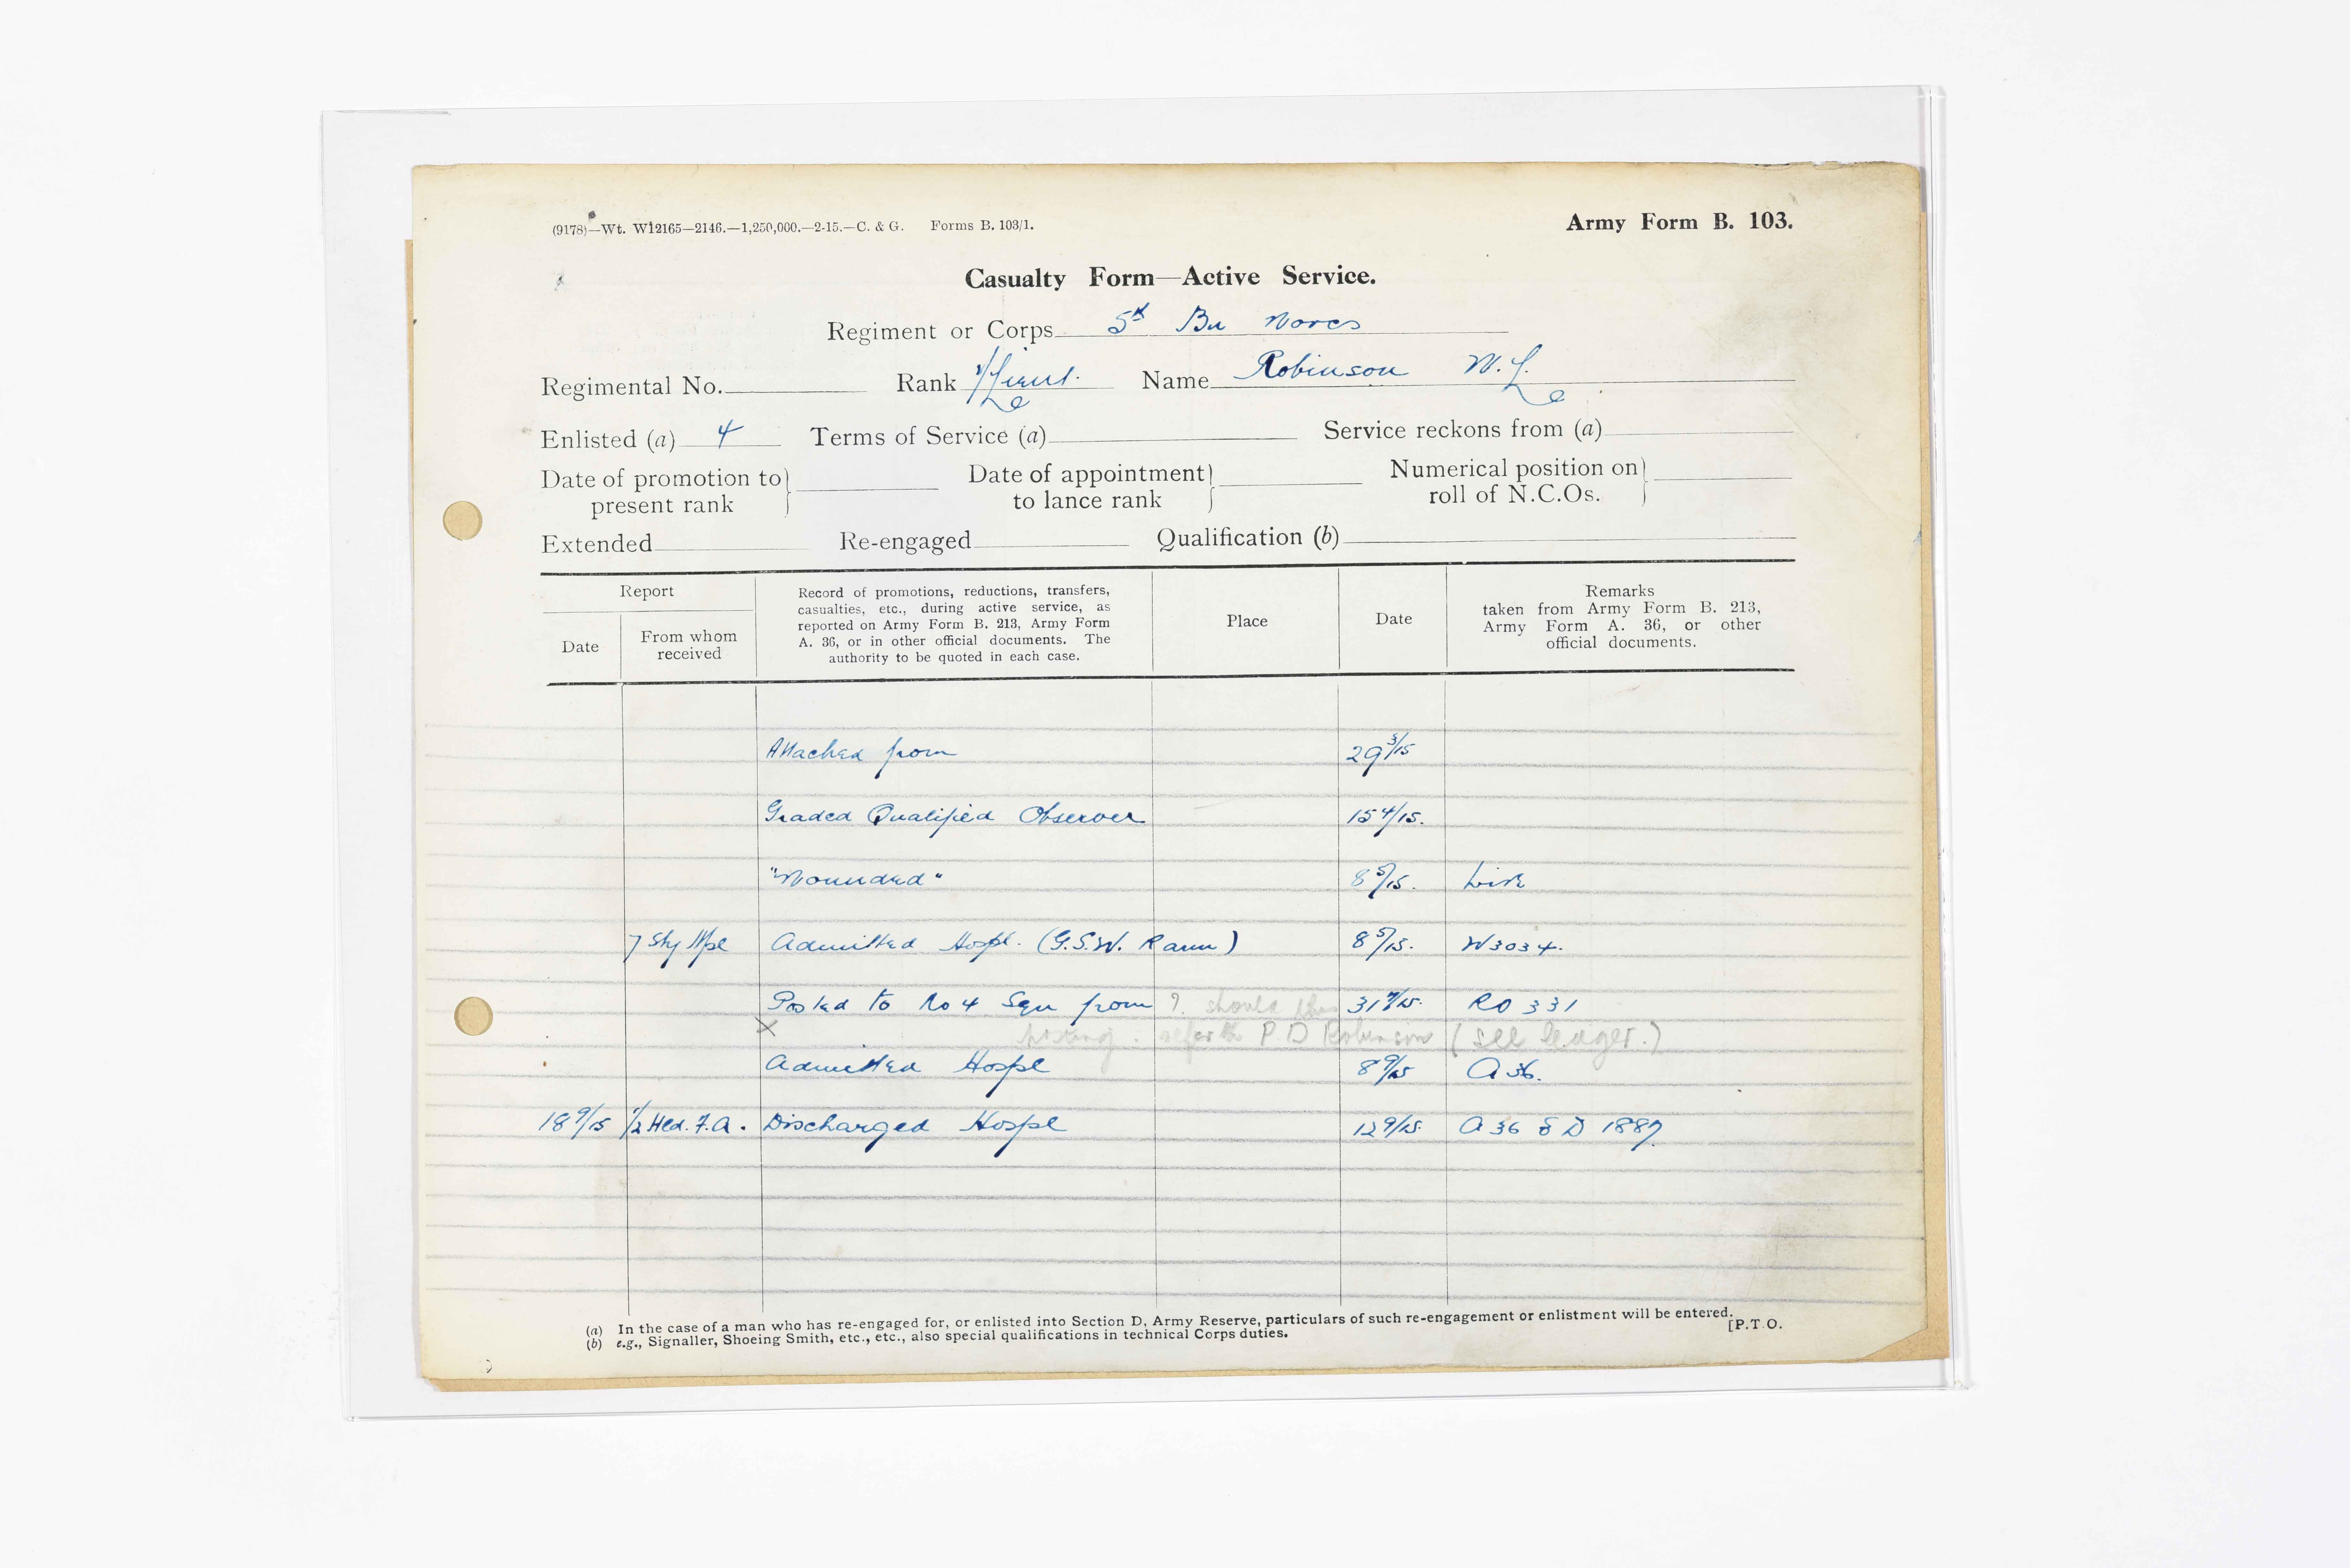 (9178)—Wt. W12165—2146.—1,250,000.—2-15.—C. & G. Forms B. 103/1.
Army Form B. 103.
Casualty Form—Active Service.
Regiment or Corps 5th Bn Worcs
Regimental No. Rank Lieut. Name Robinson W. L.
Enlisted (a) 4 Terms of Service (a) Service reckons from (a)
Date of promotion to present rank Date of appointment to lance rank Numerical position on roll of N.C.Os.
Extended Re-engaged Qualification (b)
Report
Date
From whom received
Record of promotions, reductions, transfers,
casualties, etc., during active service, as
reported on Army Form B. 213, Army Form
A. 36, or in other official documents. The
authority to be quoted in each case.
Place
Date
Remarks
taken from Army Form B. 213,
Army Form A. 36, or other
official documents.
Attached from 29 3/15
Graded Qualified Observer 15 4/15.
"Wounded" 8 5/15. List
7 Sty Hpl Admitted Hospl. (G.S.W. R arm) 8 5/15. W3034.
Posted to No 4 Sqn from ? should this 31 7/15. RO 331
X posting. refer to P. D Robinson (see ledger.)
Admitted Hospl 8 9/15 A 36.
18 9/15 1/2 Hld. F.A. Discharged Hospl 12 9/15. A 36 & D 1887
(a) In the case of a man who has re-engaged for, or enlisted into Section D, Army Reserve, particulars of such re-engagement or enlistment will be entered.
(b) e.g., Signaller, Shoeing Smith, etc., etc., also special qualifications in technical Corps duties.
[P.T.O.